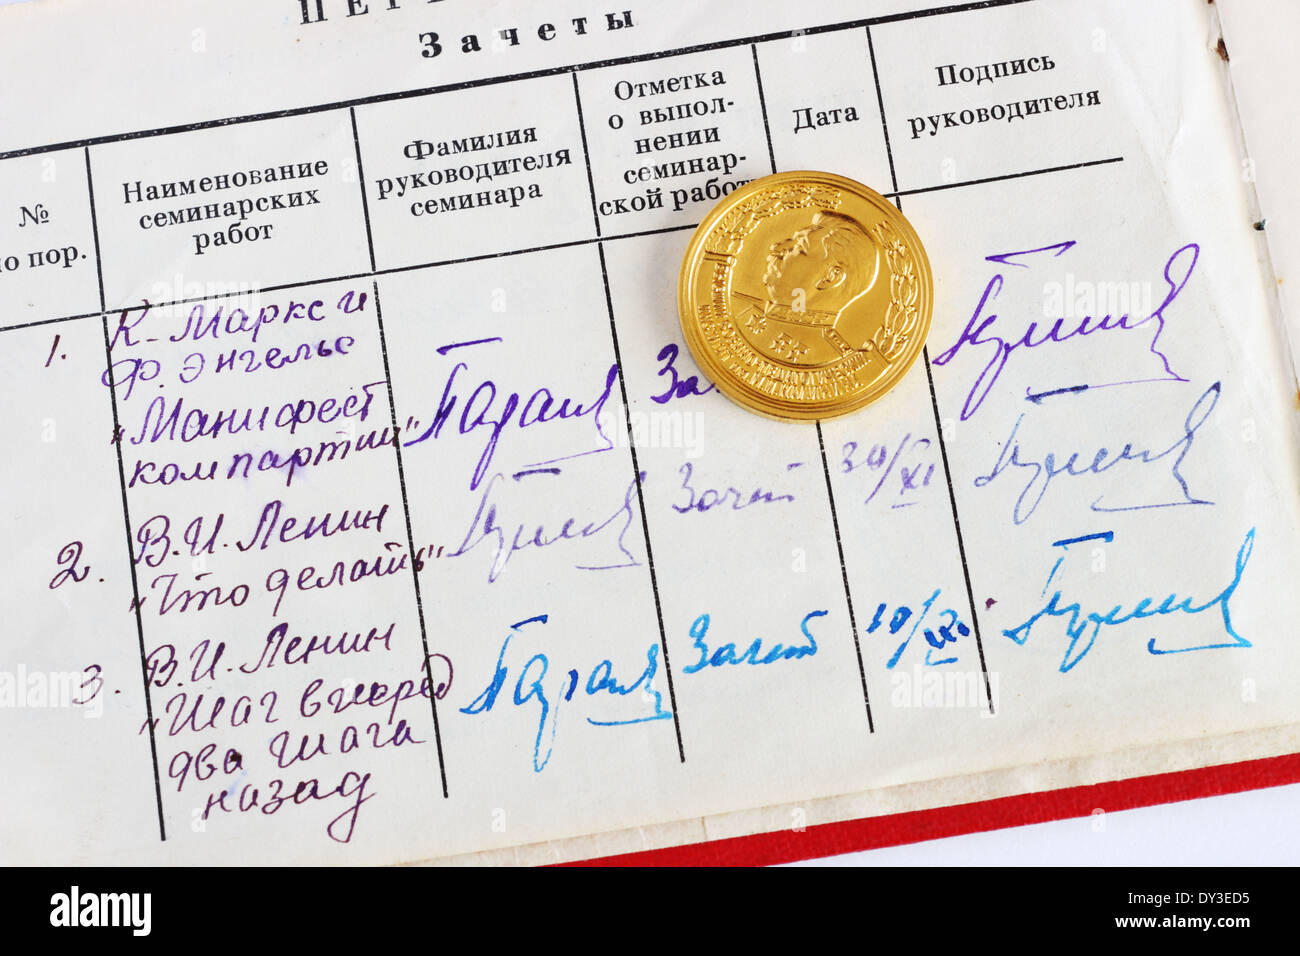 Зачеты
№
по пор.
Наименование
семинарских
работ
Фамилия
руководителя
семинара
Отметка
о выпол-
нении
семинар-
ской работ
Дата
Подпись
руководителя
1. К. Маркс и
Ф. Энгельс
"Манифест
компартии"
2. В.И. Ленин
"Что делать"
Зачёт
30/XI
3. В.И. Ленин
"Шаг вперёд
два шага
назад
Зачёт
alamy
Image ID: DY3ED5
www.alamy.com